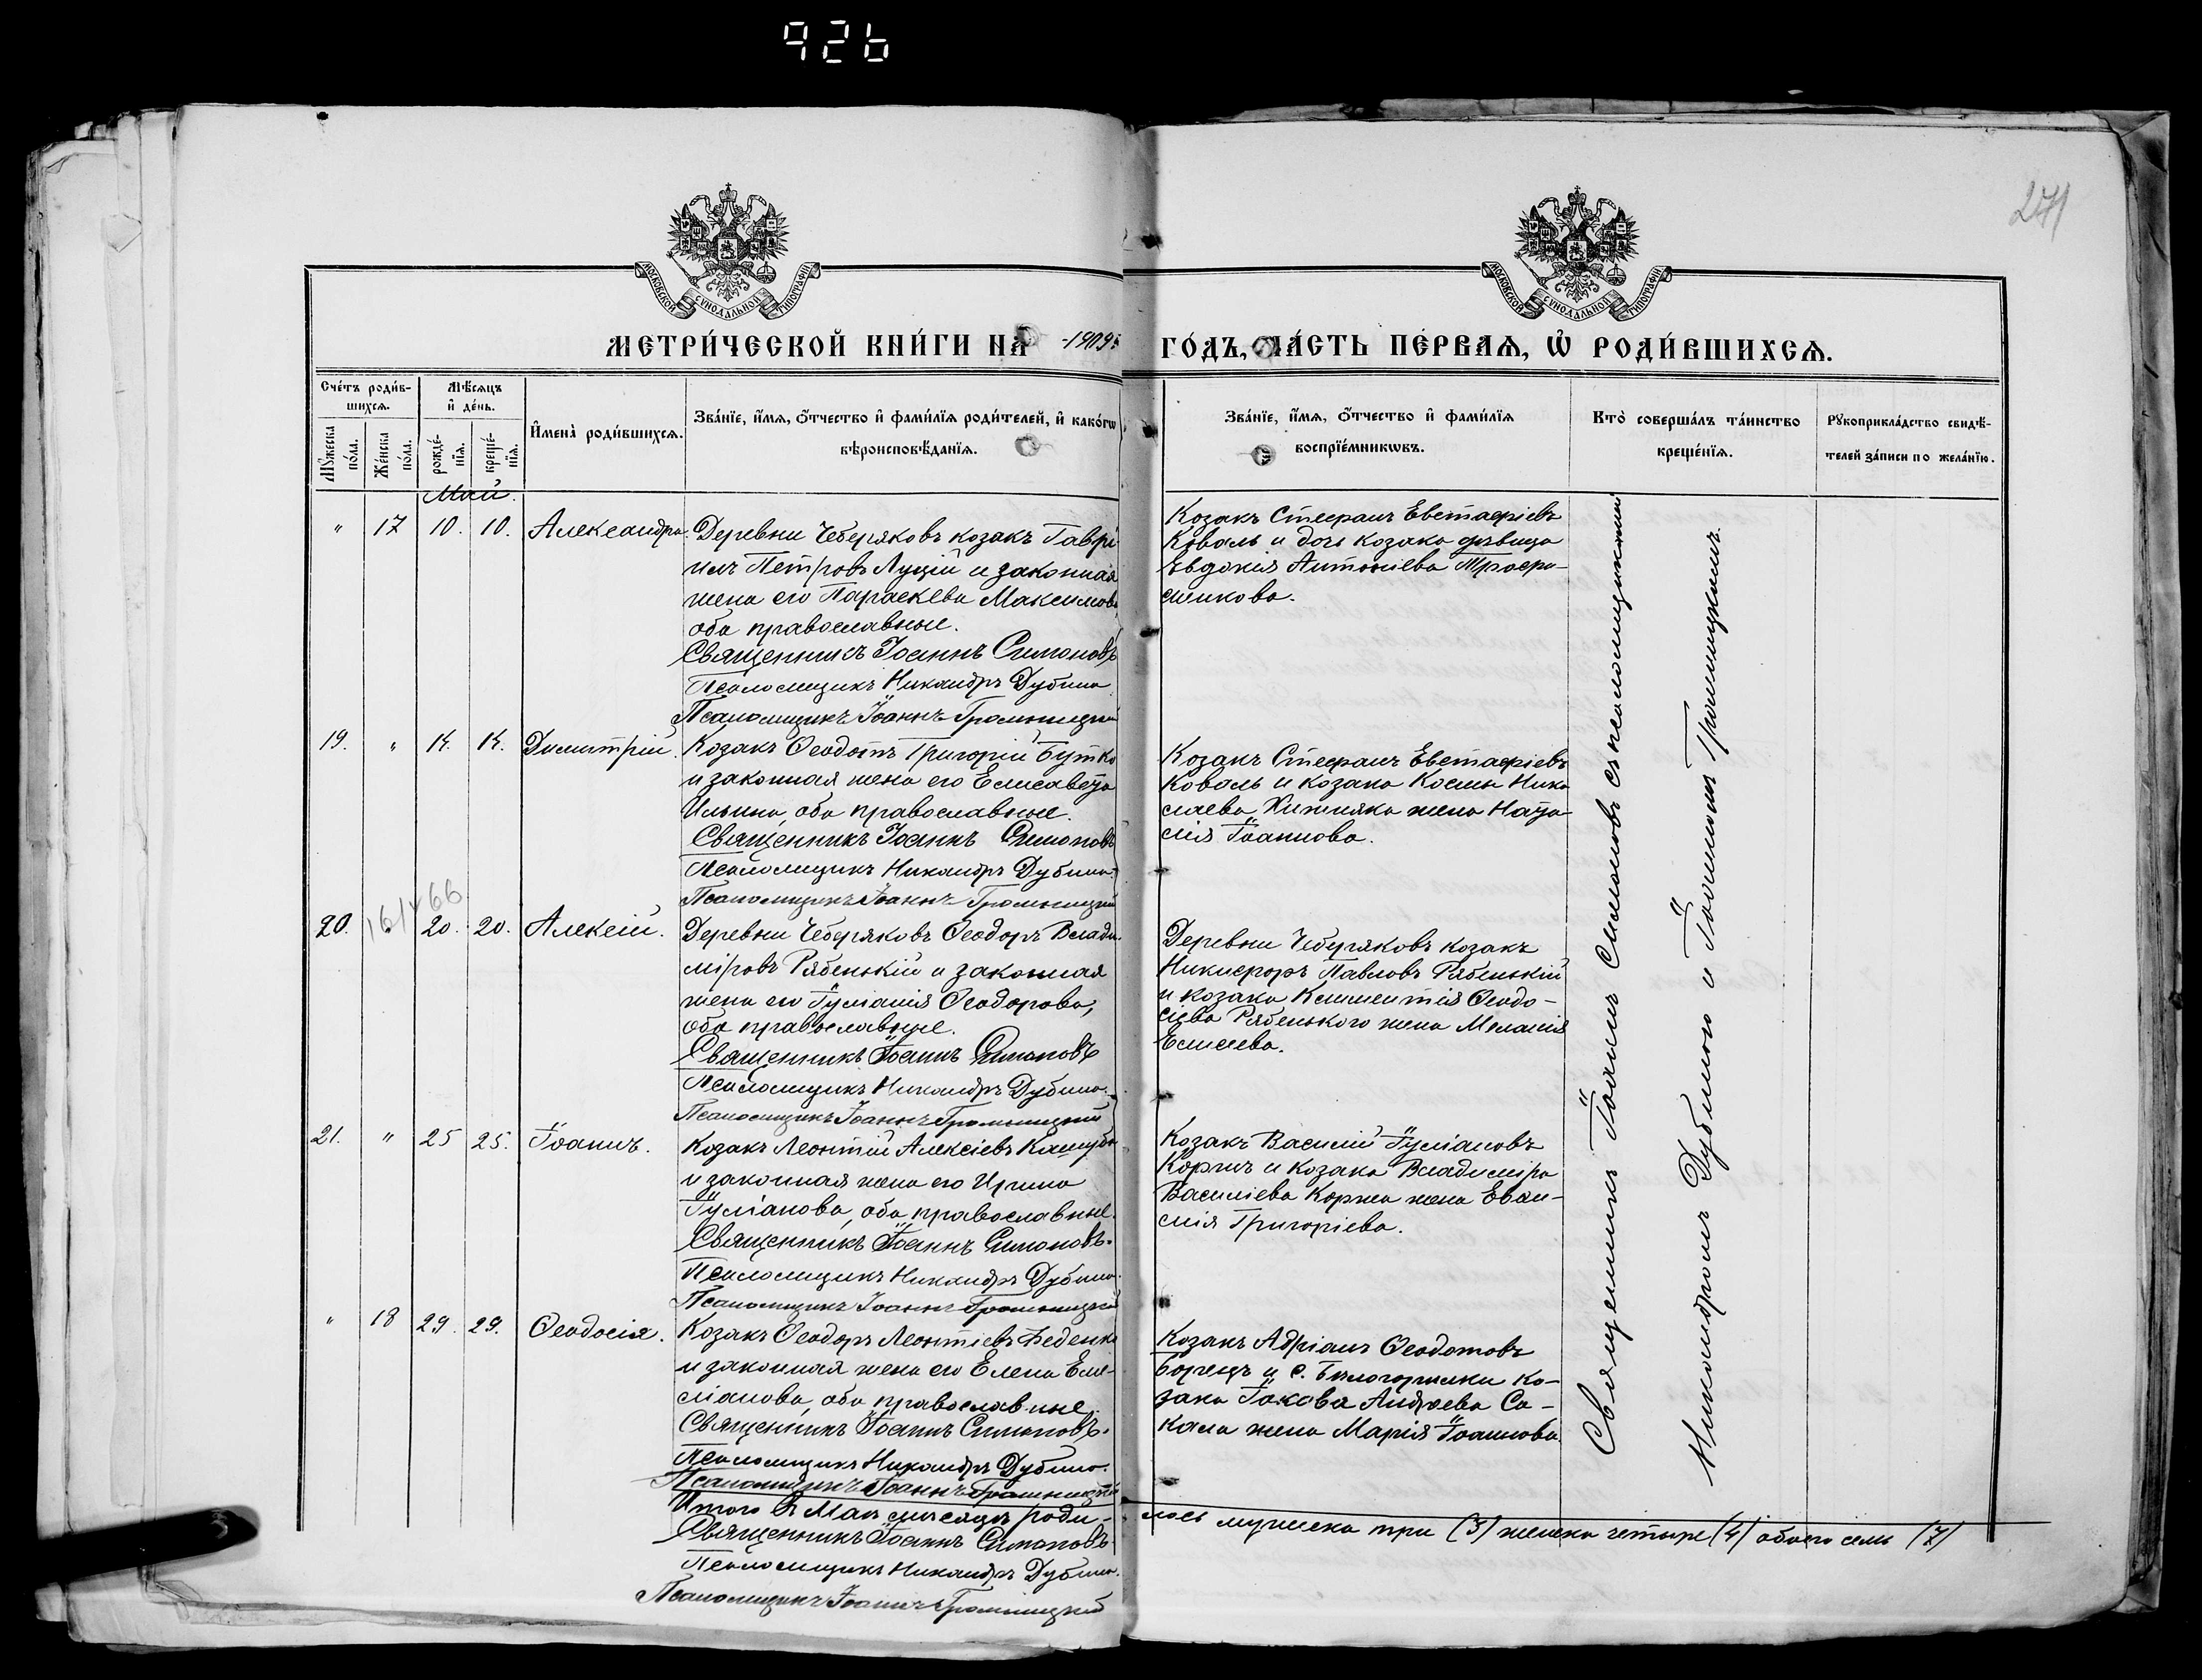 926
271
МОСКОВСКОЙ СѴНОДАЛЬНОЙ ТИПОГРАФІИ
МОСКОВСКОЙ СѴНОДАЛЬНОЙ ТИПОГРАФІИ
МЕТРИ́ЧЕСКОЙ КНИ́ГИ НА 1909й ГО́ДЪ, ЧА́СТЬ ПЕ́РВАЯ, Ѡ РОДИ́ВШИХСЯ.
Сче́тъ роди́в-
шихся.
Мѣ́сяцъ
и де́нь.
Му́жеска по́ла.
Же́нска по́ла.
рожде́-
нія.
креще́-
нія.
Имена̀ роди́вшихся.
Зва́нїе, и́мя, о́тчество и фами́лїя роди́телей, и како́гѡ
вѣроисповѣ́данїя.
Зва́нїе, и́мя, о́тчество и фами́лїя
воспрїе́мникѡвъ.
Кто̀ соверша́лъ та́инство
креще́нїя.
Рꙋкоприкла́дство свидѣ́-
телей за́писи по жела́нїю.
Май.
" 17 10. 10. Александра.
Деревни Чеберяковъ козакъ Гаврі
илъ Петровъ Луцій и законная
жена его Параскева Максимова
оба православные.
Священникъ Іоаннъ Симоновъ
Псаломщикъ Никандръ Дубина
Псаломщикъ Іоаннъ Громницкій
Козакъ Стефанъ Евстафіевъ
Коваль и дочь козака дѣвица
Евдокія Антоніева Трофи-
менкова.
19. " 14. 14. Димитрій.
Козакъ Ѳеодотъ Григорій Бутко
и законная жена его Елисавета
Ильина, оба православные.
Священникъ Іоаннъ Симоновъ
Псаломщикъ Никандръ Дубина.
Псаломщикъ Іоаннъ Громницкій
Козакъ Стефанъ Евстафіевъ
Коваль и козака Космы Нико
лаева Хижняка жена Ната
лія Іоаннова.
161466
20. " 20. 20. Алексій.
Деревни Чеберяковъ Ѳеодоръ Влади
міровъ Рябенькій и законная
жена его Іуліанія Ѳеодорова,
оба православные.
Священникъ Іоаннъ Симоновъ
Псаломщикъ Никандръ Дубина.
Псаломщикъ Іоаннъ Громницкій
Деревни Чеберяковъ козакъ
Никифоръ Павловъ Рябенькій
и козака Климентія Ѳеодо-
сіева Рябенького жена Меланія
Елисеева.
21. " 25 25. Іоаннъ.
Козакъ Леонтій Алексіевъ Кашуба
и законная жена его Ирина
Іуліанова, оба православные.
Священникъ Іоаннъ Симоновъ.
Псаломщикъ Никандръ Дубина.
Псаломщикъ Іоаннъ Громницкій
Козакъ Василій Іуліановъ
Коржъ и козака Владиміра
Василіева Коржа жена
Григоріева.
" 18 29. 29. Ѳеодосія.
Козакъ Ѳеодоръ Леонтіевъ Беденко
и законная жена его Елена Еми-
ліанова, оба православные.
Священникъ Іоаннъ Симоновъ.
Псаломщикъ Никандръ Дубина.
Псаломщикъ Іоаннъ Громницкій
Козакъ Адріанъ Ѳеодотовъ
Борецъ и с. Бѣлогорилки ко-
зака Іакова Андреева Со-
кола жена Марія Іоаннова
Священникъ Іоаннъ Симоновъ съ псаломщиками
Никандромъ Дубиною и Іоанномъ Громницкимъ.
Итого въ Маѣ мѣсяцѣ роди-лось мужеска три (3) женска четыре (4) обоего семь (7)
Священникъ Іоаннъ Симоновъ
Псаломщикъ Никандръ Дубина.
Псаломщикъ Іоаннъ Громницкій